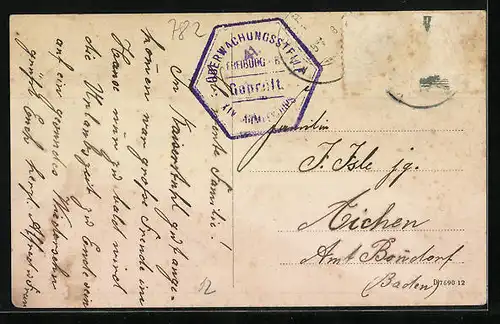 782
ÜBERWACHUNGSSTELLE
FREIBURG i. B.
Geprüft.
XIV. ARMEEKORPS
Familie!
In Kaiserstuhl gut ange-
kommen war große Freude im
Hause nur zu bald wird
die Urlaubszeit zu Ende sein
auf ein gesundes Wiedersehn
grüßt Euch herzl.
12
Familie
J. Isle jg.
Aichen
Amt Bonndorf
(Baden)
D17690 12